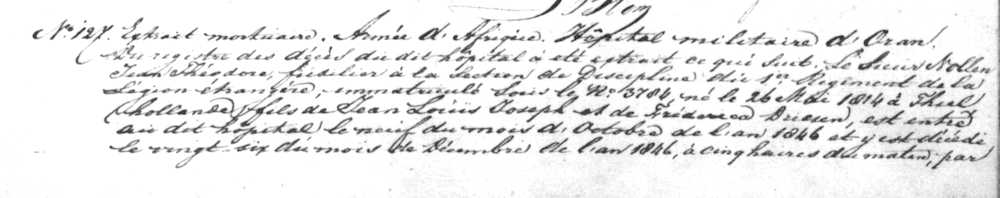 No. 127. Extrait mortuaire. Armée d'Afrique. Hôpital militaire d'Oran.
Du registre des décès du dit hôpital à été extrait ce qui suit. Le Sieur Nollen
Jean Theodore, fusilier à la Section de Discipline du 1er Régiment de la
Légion étrangère, immatriculé sous le No. 3784, né le 26 Mai 1814 à Thiel
(hollande) fils de Jean Louis Joseph et de Driesen, est entré
au dit hôpital le neuf du mois d'Octobre de l'an 1846 et y est décédé
le vingt-six du mois de Décembre de l'an 1846, à cinq heures du matin, par